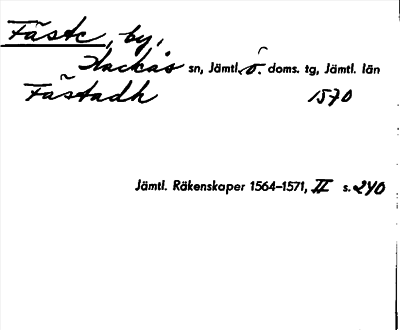 Fäste, by,
Hackås sn, Jämtl. ö. doms. tg, Jämtl. län
Fästadh 1570
Jämtl. Räkenskaper 1564–1571, II s. 240